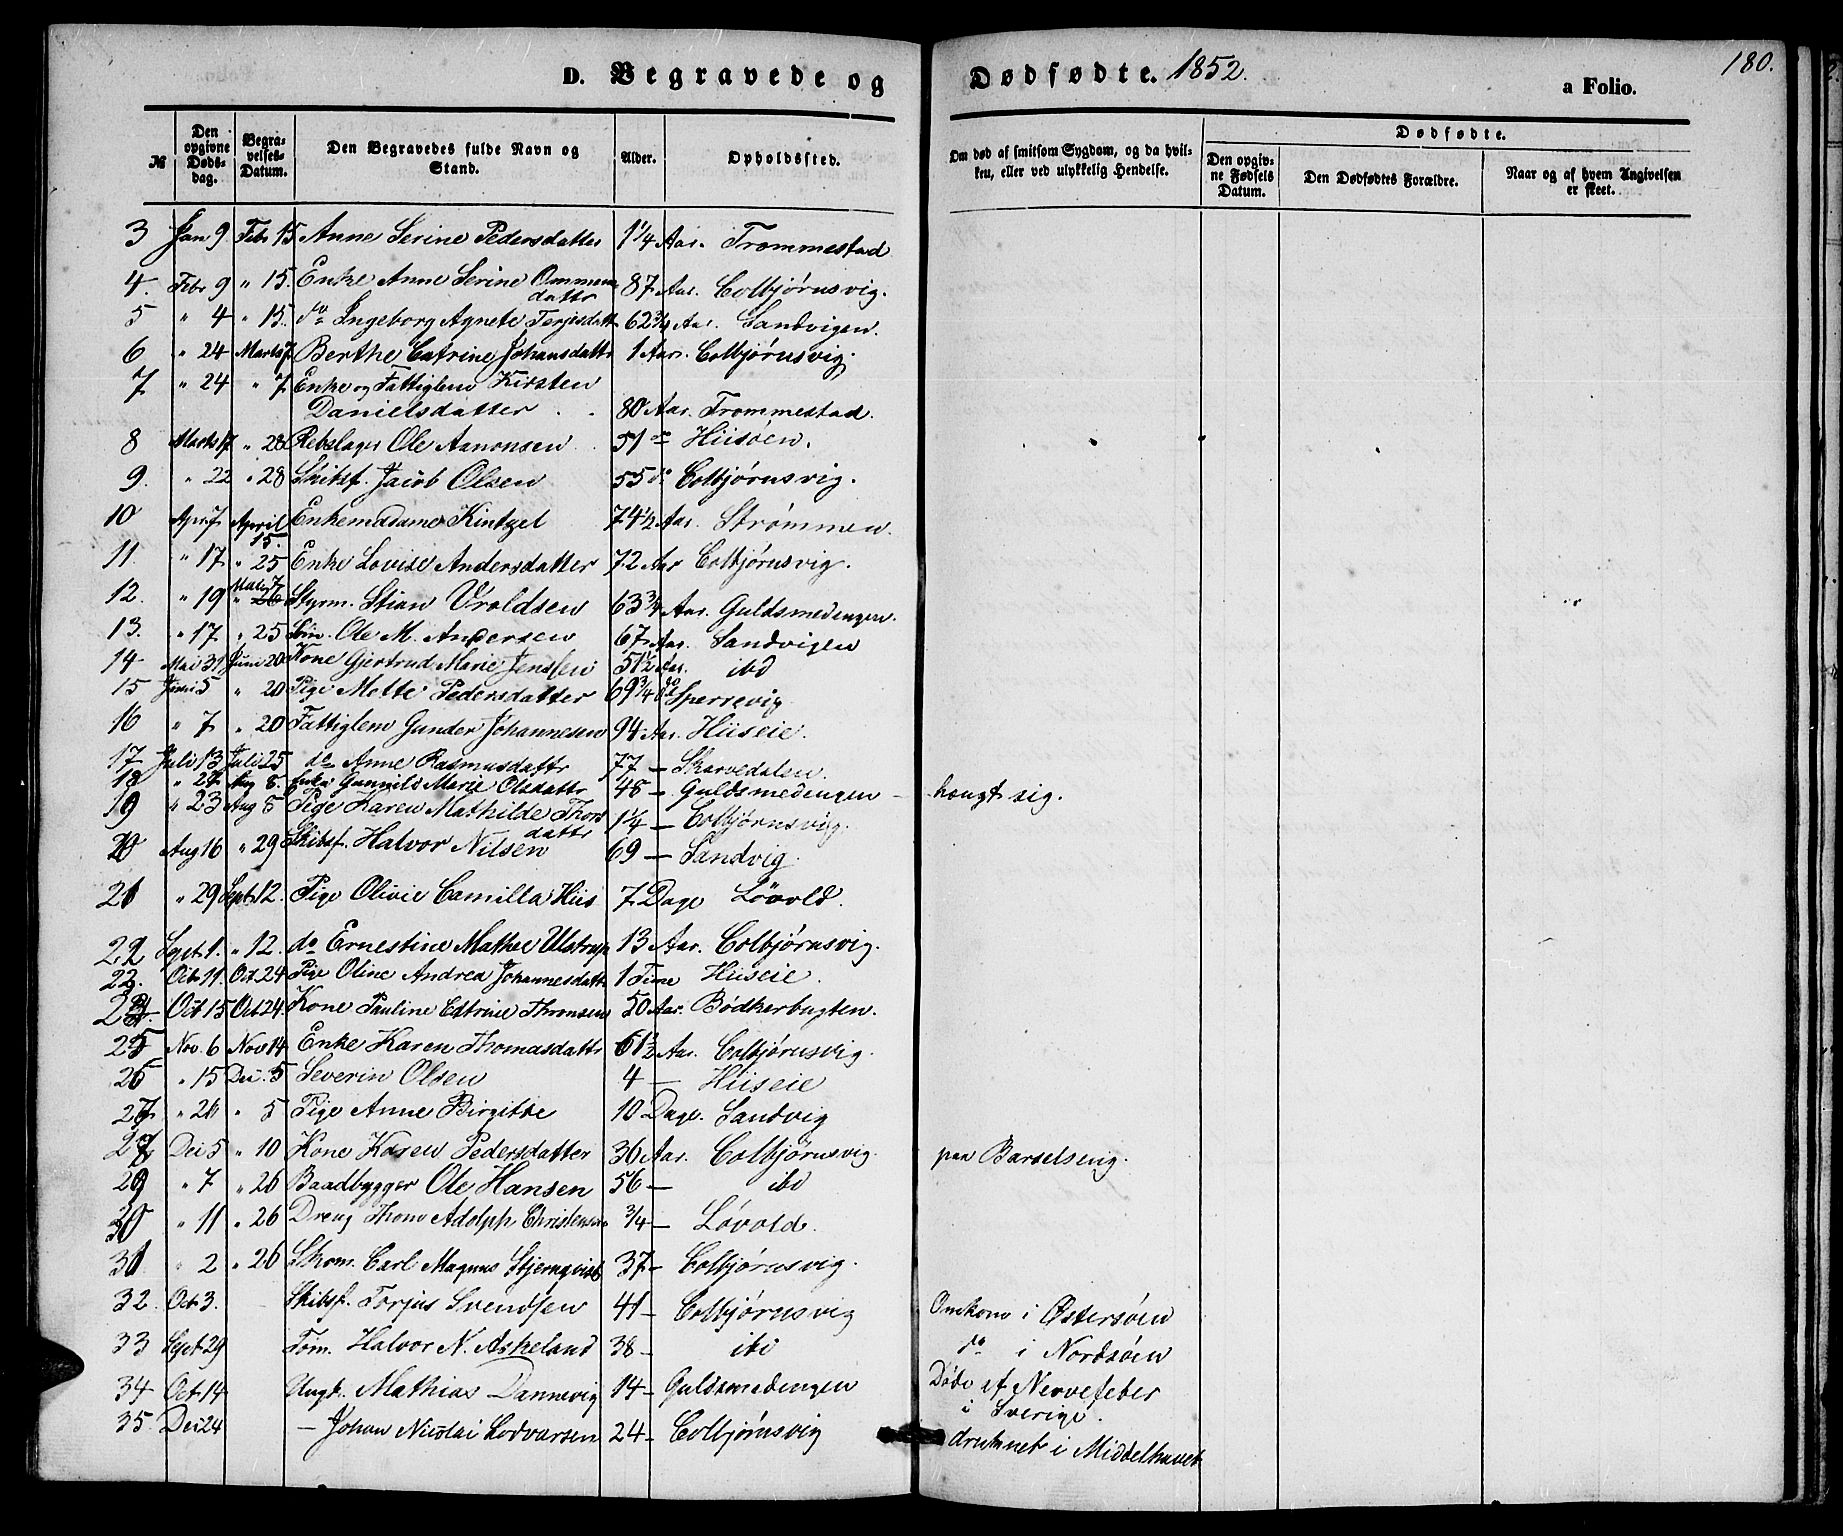 D. Begravede og Dødfødte. 1852. a Folio. 180.
№ Den opgivne Døds-dag. Begra-velses-Datum. Den Begravedes fulde Navn og Stand. Alder. Opholdssted. Om død af smitsom Sygdom, og da hvil-ken, eller ved ulykkelig Hendelse. Dødfødte. Den opgiv-ne Fødsels Datum. Den Dødfødtes Forældre. Naar og af hvem Angivelsen er skeet.
3 Jan 9 Febr 15 Anne Serine Pedersdatter 1 1/4 Aar. Trommestad
4. Febr 9 " 15. Enke Anne Serine Ommunds
dattr 87 Aar. Colbjørnsvig.
5 " 4 " 15. do Ingeborg Agnete Terjesdatt 62 3/4 Aar. Sandvigen.
6 " 24 Marts 7 Berthe Catrine Johansdattr 1 Aar. Colbjørnsvig.
7 " 24 " 7 Enke og Fattiglem Kirsten
Danielsdatter 80 Aar. Trommestad.
8 Marts 17 " 28 Rebslager Ole Aanonsen 51 do Hiisøen.
9. " 22 " 28 Skibsf. Jacob Olsen 55 do Colbjørnsvig.
10 Apr. 7 April 15. Enkemadame Kintzel 74 1/2 Aar. Strømmen.
11. " 17 " 25 Enke Lovise Andersdatter 72 Aar Colbjørnsvig.
12. " 19 Mai 7 " 26 Styrm. Stian Vroldsen 63 3/4 Aar. Guldsmedengen.
13. " 17 " 25 Ole M. Andersen 67 Aar. Sandvigen
14 Mai 31 Juni 20 Kone Gjertrud Marie Jenssen 51 1/2 Aar. ibd
15 Juni 5 " 20 Pige Mette Pedersdatter 69 3/4 do Sperrevig
16 " 7 " 20 Fattiglem Gunder Johannesen 94 Aar. Hiiseie.
17 Juli 13 Juli 25 do Anne Rasmusdattr 77 — Skarvedalen.
18 " 27 Aug 8. Enke Gunnild Marie Olsdattr 48 — Guldsmedengen — hængt sig.
19 " 23 Aug 5 Pige Karen Mathilde Thors
dattr 1 1/4 — Colbjørnsvig.
20 Aug 16 " 29 Skibsf. Halvor Nilsen 69 — Sandvig.
21 " 29 Sept 12. Pige Olivie Camilla Hiis 7 Dage Løvold.
22 Sept 1. " 12. do Ernestine Mathee Ulstrup 13 Aar. Colbjørnsvig.
23. Octr 11. Oct 24 Pige Oline Andrea Johannesdattr 1 Time Hiiseie.
24. Oct 15 Oct 24. Kone Pauline Catrine Thomsen 50 Aar. Bødkerbugten.
25 Nov. 6 Nov 14 Enke Karen Thomasdattr 61 1/2 Aar. Colbjørnsvig.
26 " 15 Dec. 5 Severin Olsen 4 — Hiiseie
27 " 26 " 5 Pige Anne Birgithe 10 Dage. Sandvig
28 Dec 5 " 10 Kone Karen Pedersdatter 36 Aar. Colbjørnsvig. paa Barselseng.
29 " 7 " 26 Baadbygger Ole Hansen 56 — ibd
30 " 11 " 26 Dreng Thom Adolph Christensen 3/4 — Løvold.
31 " 2 " 26 Skom. Carl Magnus Stjernqvist 37 — Colbjørnsvig.
32. Oct 3. Skibsf. Torjus Svendsen 41 — Colbjørnsvig Omkom i Østersøen
33 Sept 29 Tøm. Halvor N. Askeland 38 — ibd do i Nordsøen
34 Oct 14 Ungk. Mathias Dannevig 14 — Guldsmedengen Døde af Nervefeber
i Sverige.
35. Dec 24 — Johan Nicolai Lodvarsen 24 — Colbjørnsvig druknet i Middelhavet